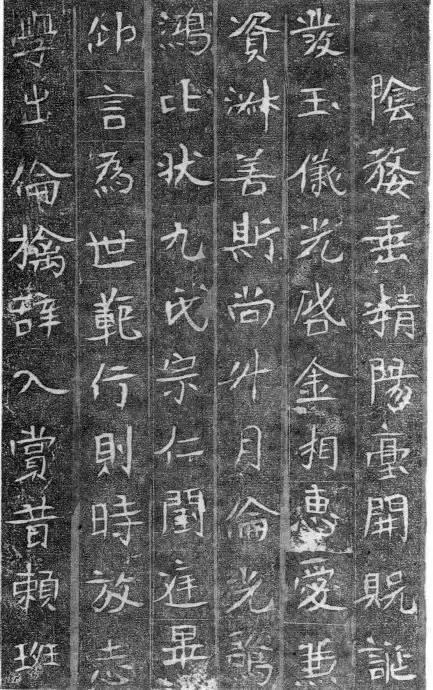 陰婺垂精陽臺開貺誕
發玉儀光啓金相惠愛兼
資淋善斯尚升月倫光
鴻比狀九氏宗仁閨庭
仰言為世範行則時放志
學出倫摛辭入賞昔賴班